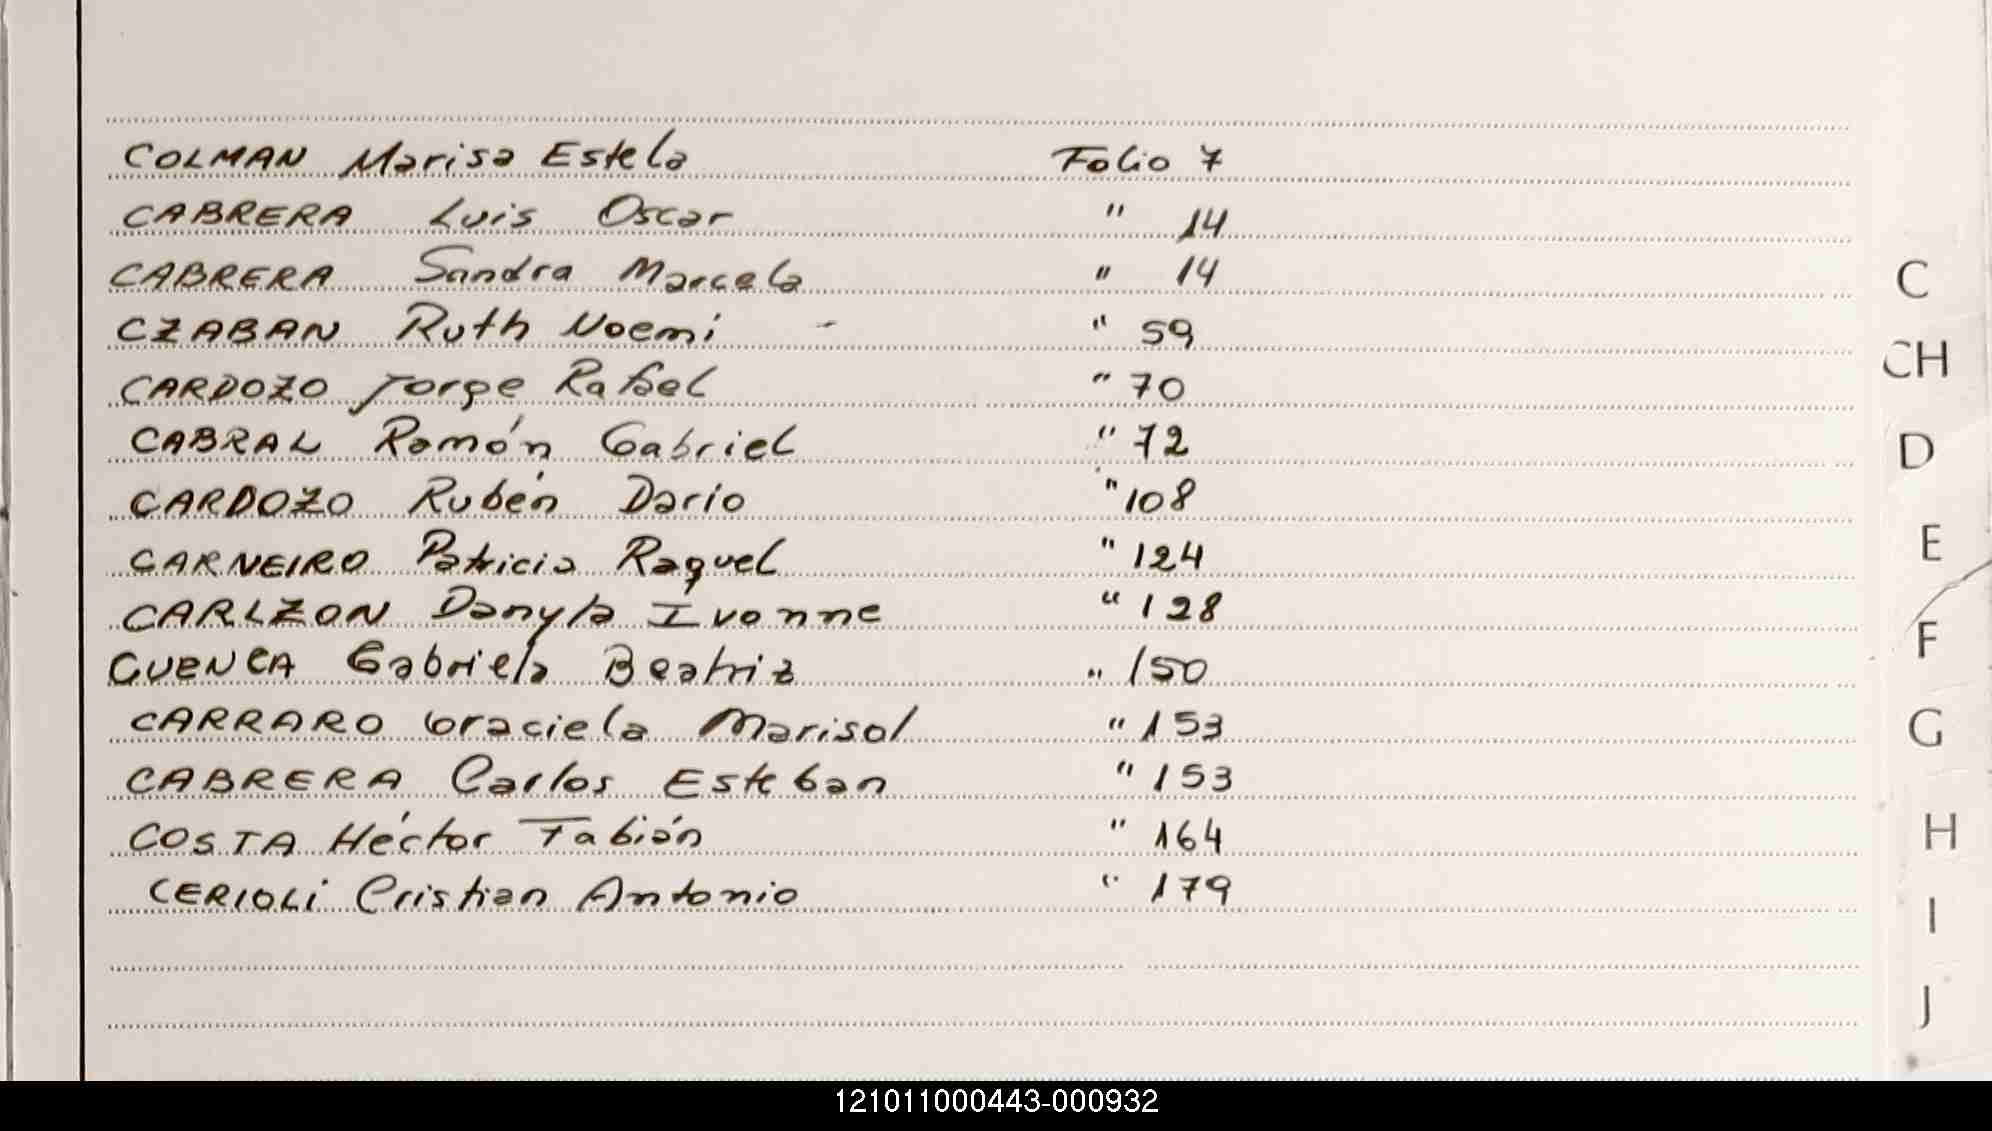 COLMAN Marisa Estela Folio 7
CABRERA Luis Oscar " 14
CABRERA Sandra Marcela " 14
CZABAN Ruth Noemi - " 59
CARDOZO Jorge Rafael " 70
CABRAL Ramón Gabriel " 72
CARDOZO Rubén Dario " 108
CARNEIRO Patricia Raquel " 124
CARLZON Danyla Ivonne " 128
CUENCA Gabriela Beatriz " 150
CARRARO Graciela Marisol " 153
CABRERA Carlos Esteban " 153
COSTA Héctor Fabián " 164
CERIOLI Cristian Antonio " 179
C
CH
D
E
F
G
H
I
J
121011000443-000932